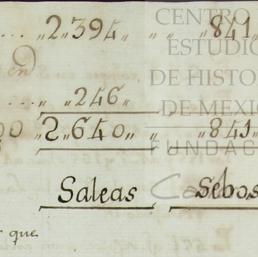 .... „2„394„ „ „841„
....„ „246„
„2„640„ „ „841„
Saleas Sebos
que
CENTRO
ESTUDIO
DE HISTO
DE MEXIC
FUNDAC